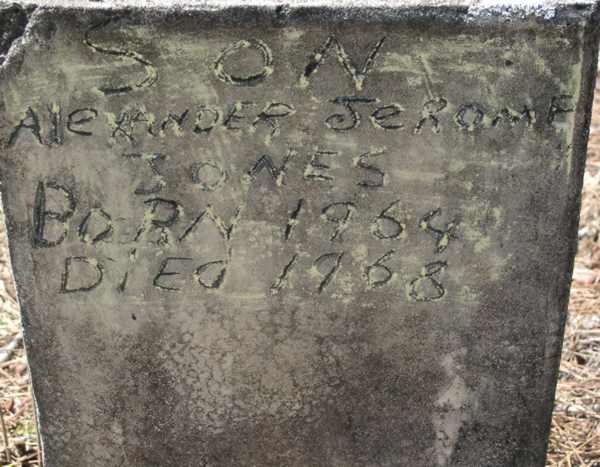 SON
AlexANDER JeROME
JONES
BORN 1964
DiEd 1968